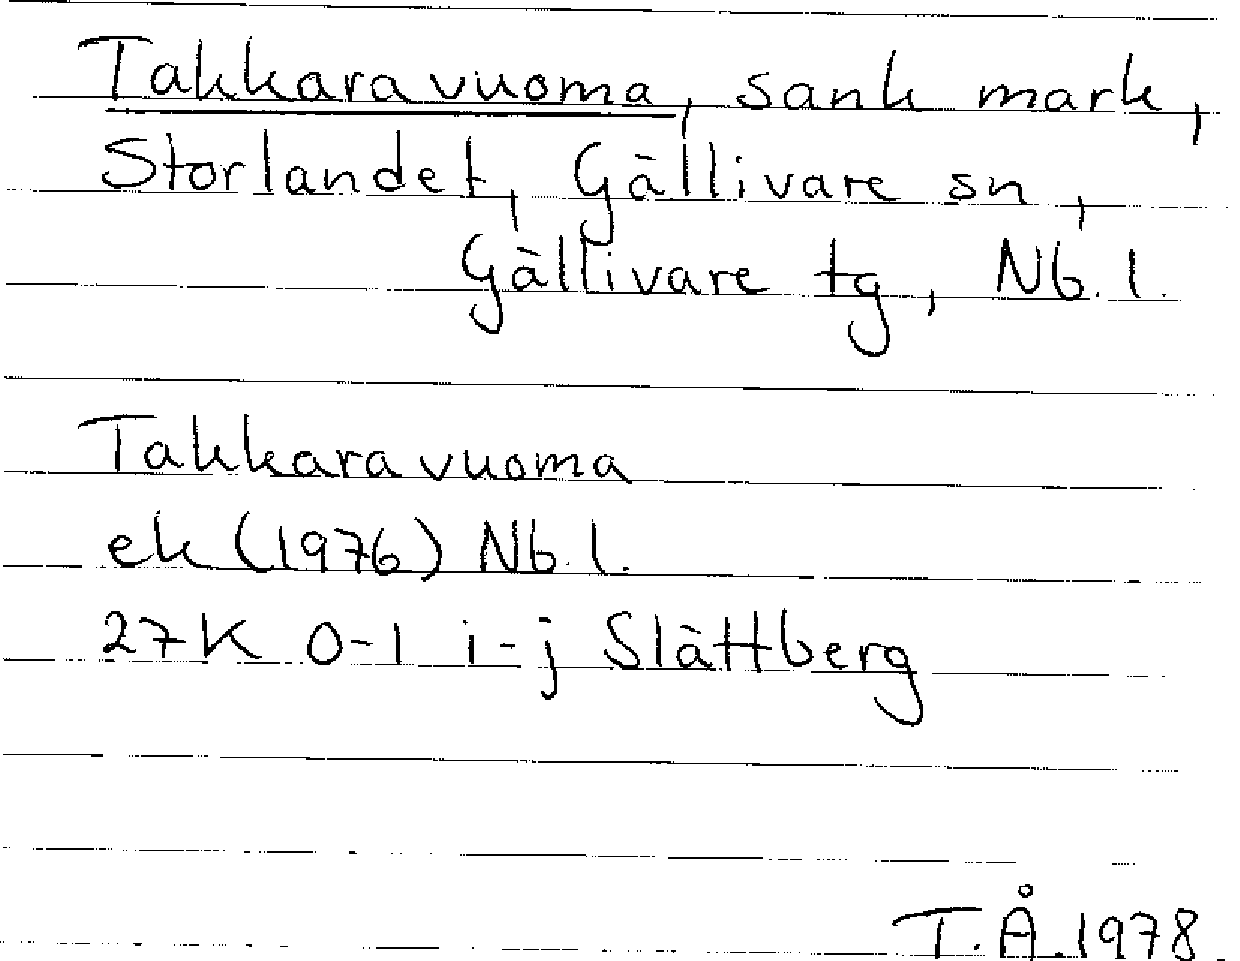 Takkaravuoma, sank mark,
Storlandet, Gällivare sn,
Gällivare tg, Nb. l.
Takkaravuoma
ek (1976) Nb. l.
27K 0-1 i-j Slättberg
T.Å.1978.